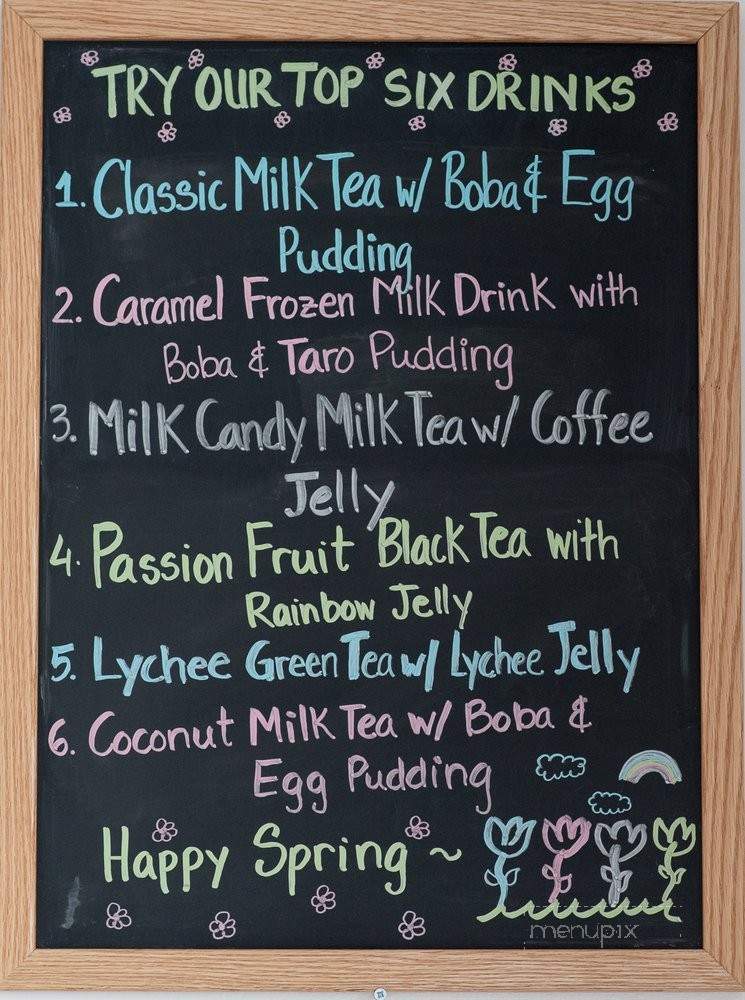 TRY OUR TOP SIX DRINKS
1. Classic Milk Tea w/ Boba & Egg
Pudding
2. Caramel Frozen Milk Drink with
Boba & Taro Pudding
3. Milk Candy Milk Tea w/ Coffee
Jelly
4. Passion Fruit Black Tea with
Rainbow Jelly
5. Lychee Green Tea w/ Lychee Jelly
6. Coconut Milk Tea w/ Boba &
Egg Pudding
Happy Spring ~
menupix